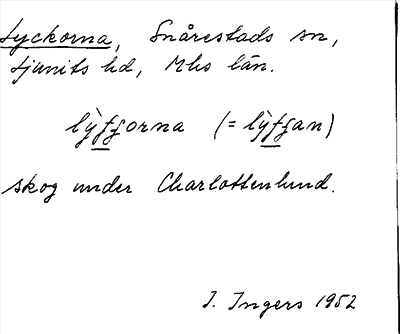 Lyckorna, Snårestads sn,
Ljunits hd, Mhs län.
lỳfgorna (= lỳfgan)
skog under Charlottenlund.
I. Ingers 1952